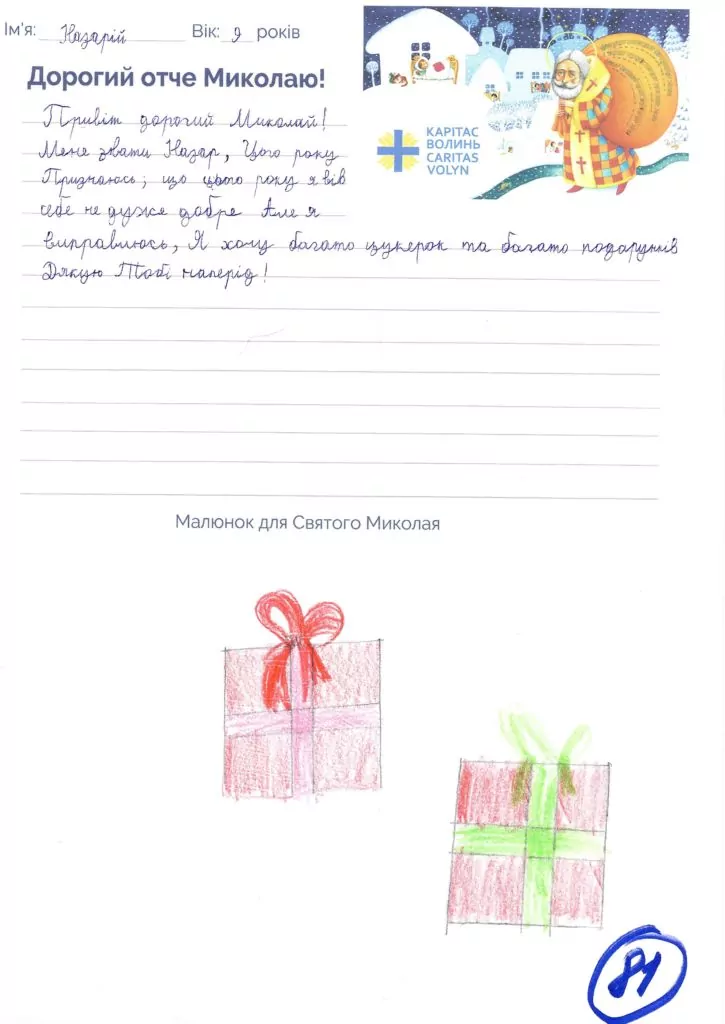 Ім'я: Назарій Вік: 9 років
Дорогий отче Миколаю!
КАРІТАС
ВОЛИНЬ
CARITAS
VOLYN
Привіт дорогий Миколай!
Мене звати Назар, Цього року
Признаюсь; що цього року я вів
себе не дуже добре Але я
виправлюсь, Я хочу багато цукерок та багато подарунків
Дякую Тобі наперід!
Малюнок для Святого Миколая
81